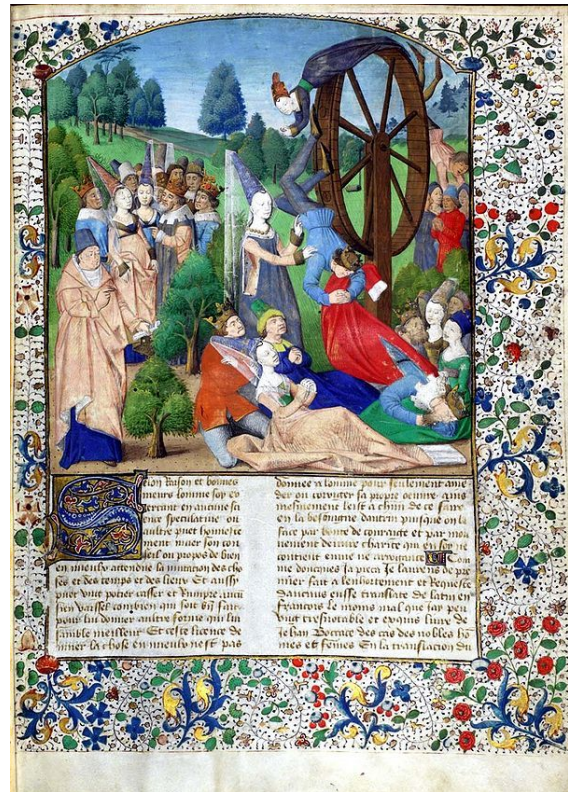 Selon Raison et bonnes
meurs lomme soy ex
cercant en aucune sci
ence speculative ou
autre puet honneste
ment muer son con
seil ou propos de bien
en mieulx attendue la mutation des cho
ses et des temps et des lieux Et aussy
puet ung potier casser et Rumpre aucu
pour lui donner autre forme qui lui
samble meilleur Et ceste licence de
muer la chose en mieulx nest pas
donnee a lomme pour seulement amen
der ou corrigier sa propre oeuvre ains
mesmement leist a chascun de ce faire
en la besongne dautrui puisque on le
face par bonte de courage et par mou
vement de vraye charite qui en soy
contient envie ne arrogance
me doncques ia pieca Je laurens de pre
mier fait a lenhortement et Requeste
daucuns eusse translate de latin en
francois le moins mal que iay peu
ung tresnotable et exquis livre de
Jehan Bocace des cas des nobles hom
mes et femmes En la translacion du